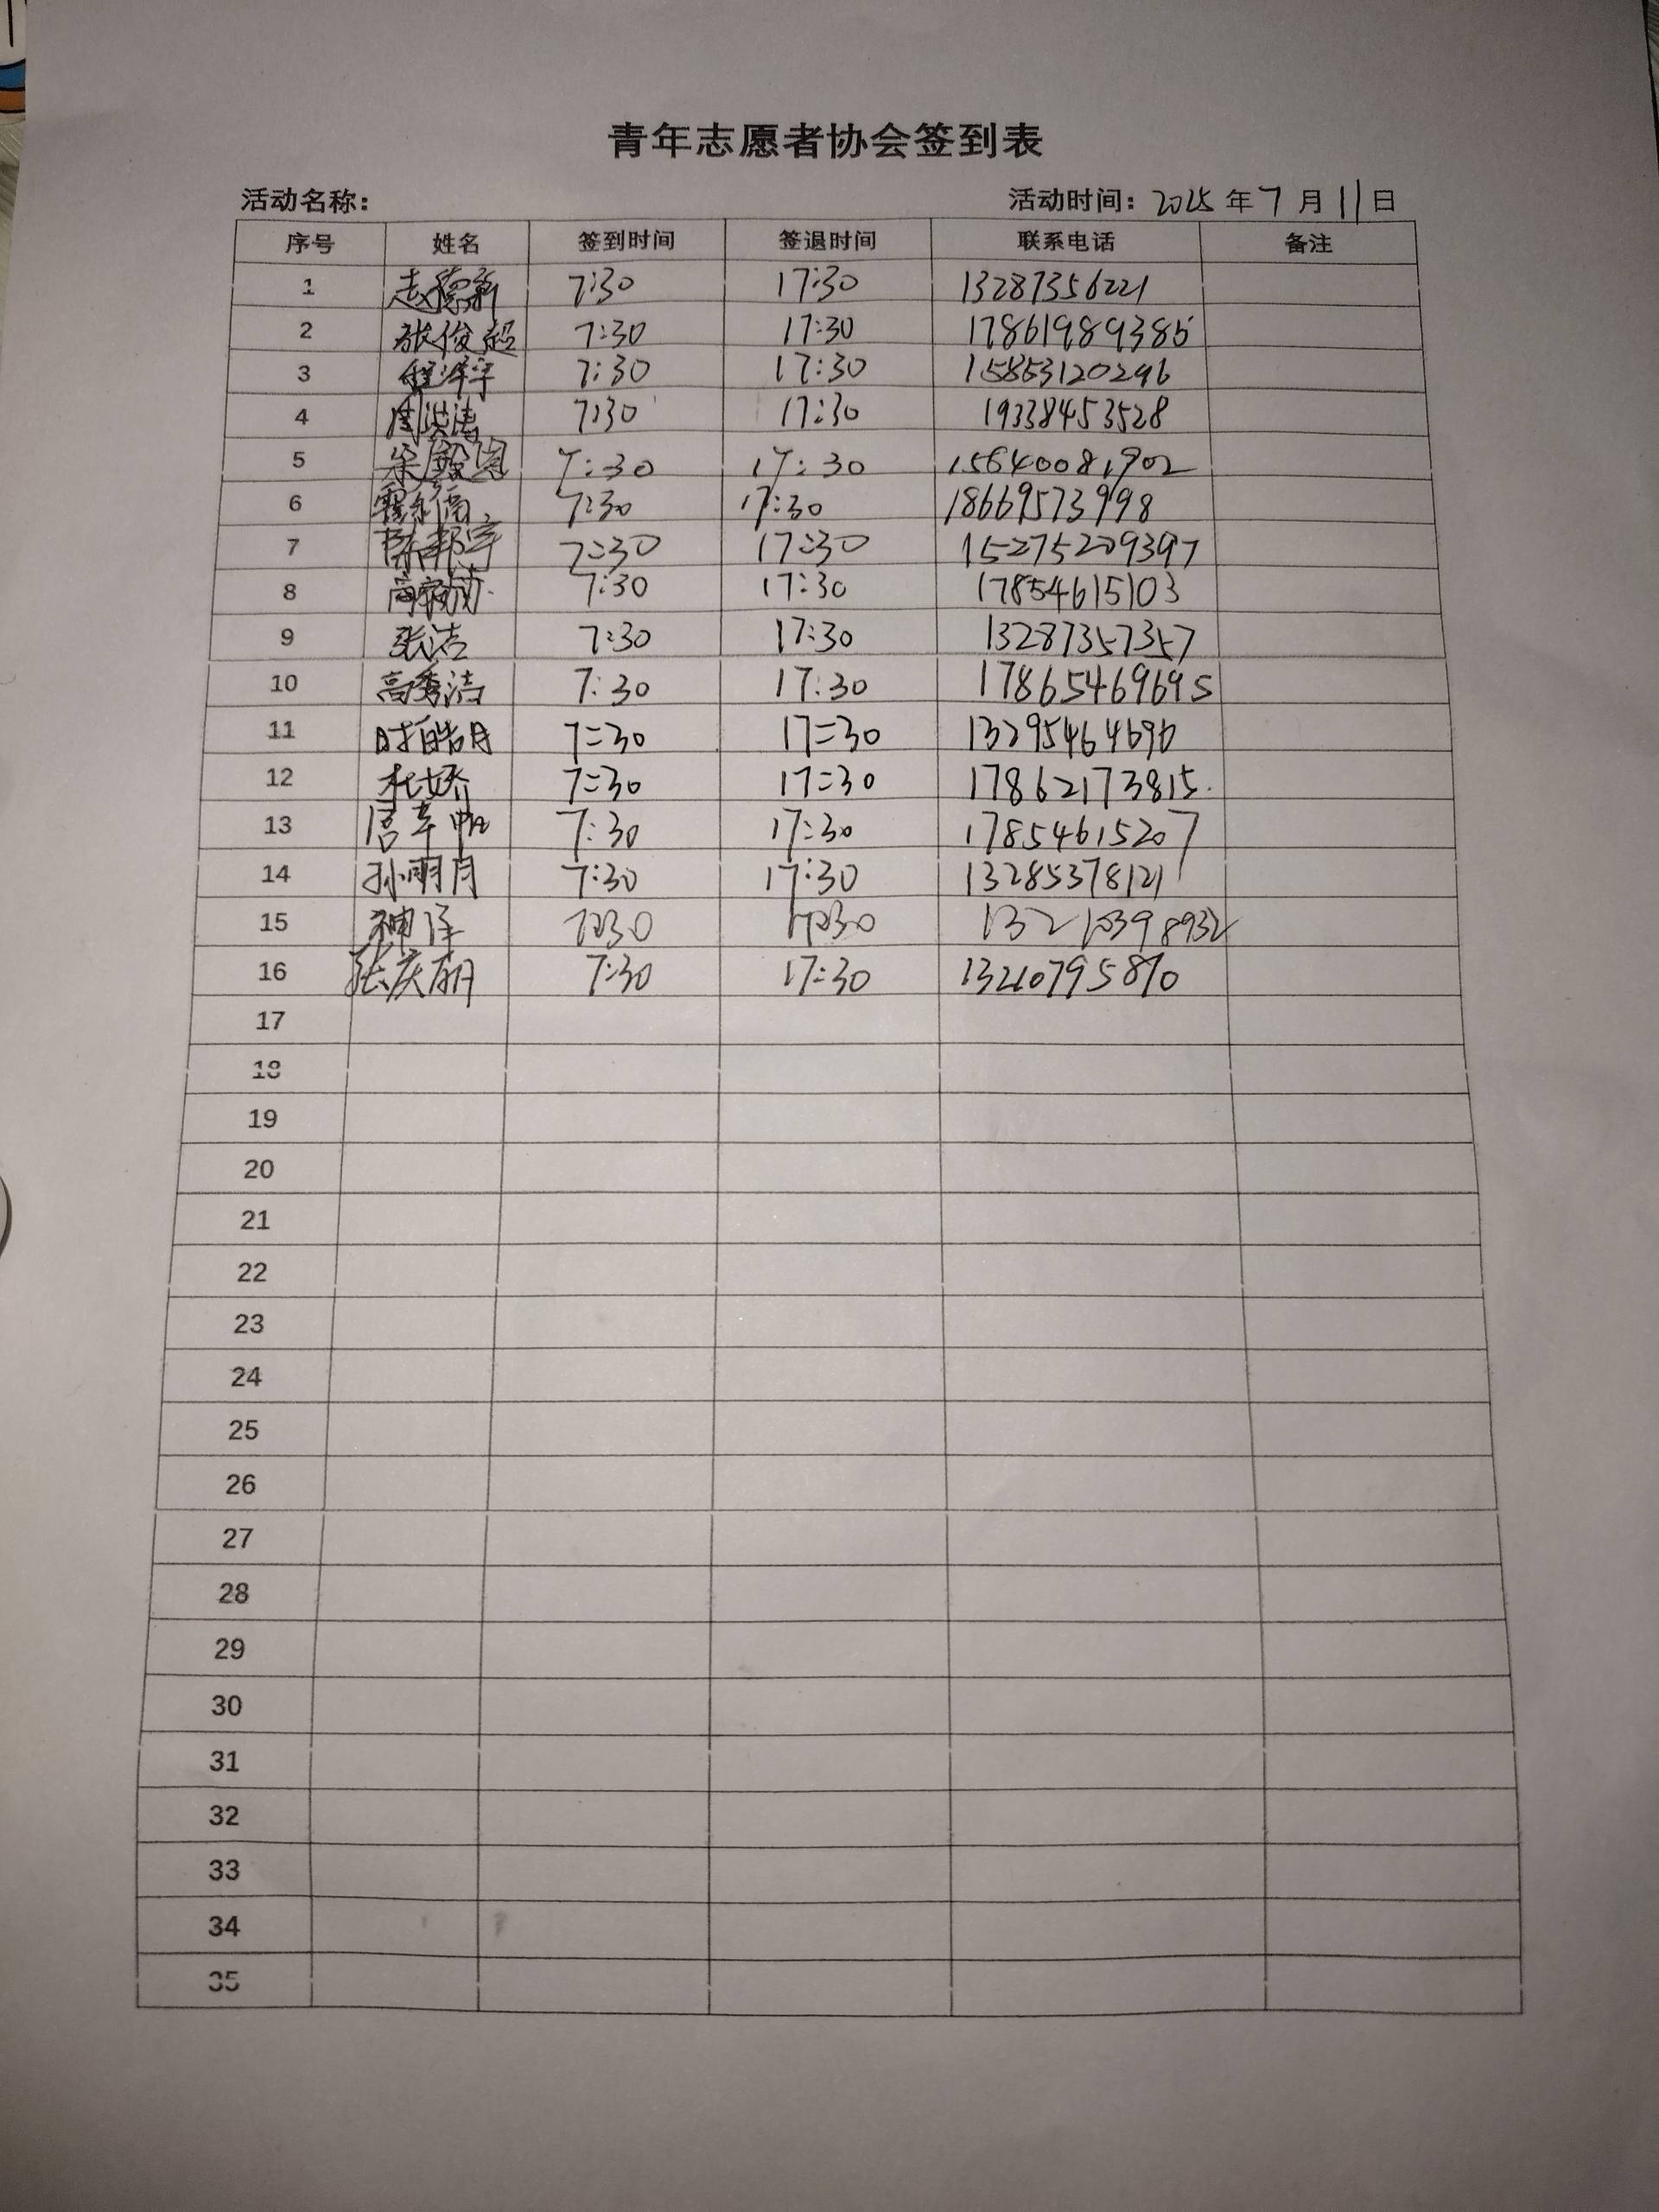 青年志愿者协会签到表
活动名称： 活动时间：2025 年 7 月 11 日
序号 姓名 签到时间 签退时间 联系电话 备注
1 赵德新 7:30 17:30 13287356221
2 张俊超 7:30 17:30 17861989385
3 7:30 17:30 15853120296
4 周洪涛 7:30 17:30 19338453528
5 7:30 17:30 15640081902
6 7:30 17:30 18669573998
7 陈邦宇 7:30 17:30 15275209397
8 7:30 17:30 17854615103
9 张洁 7:30 17:30 13287357357
10 高秀洁 7:30 17:30 17865469695
11 时皓月 7:30 17:30 13295464696
12 杜娇 7:30 17:30 17862173815
13 7:30 17:30 17854615207
14 孙明月 7:30 17:30 13285378121
15 7:30 17:30
16 张庆朝 7:30 17:30 13210795870
17
18
19
20
21
22
23
24
25
26
27
28
29
30
31
32
33
34
35